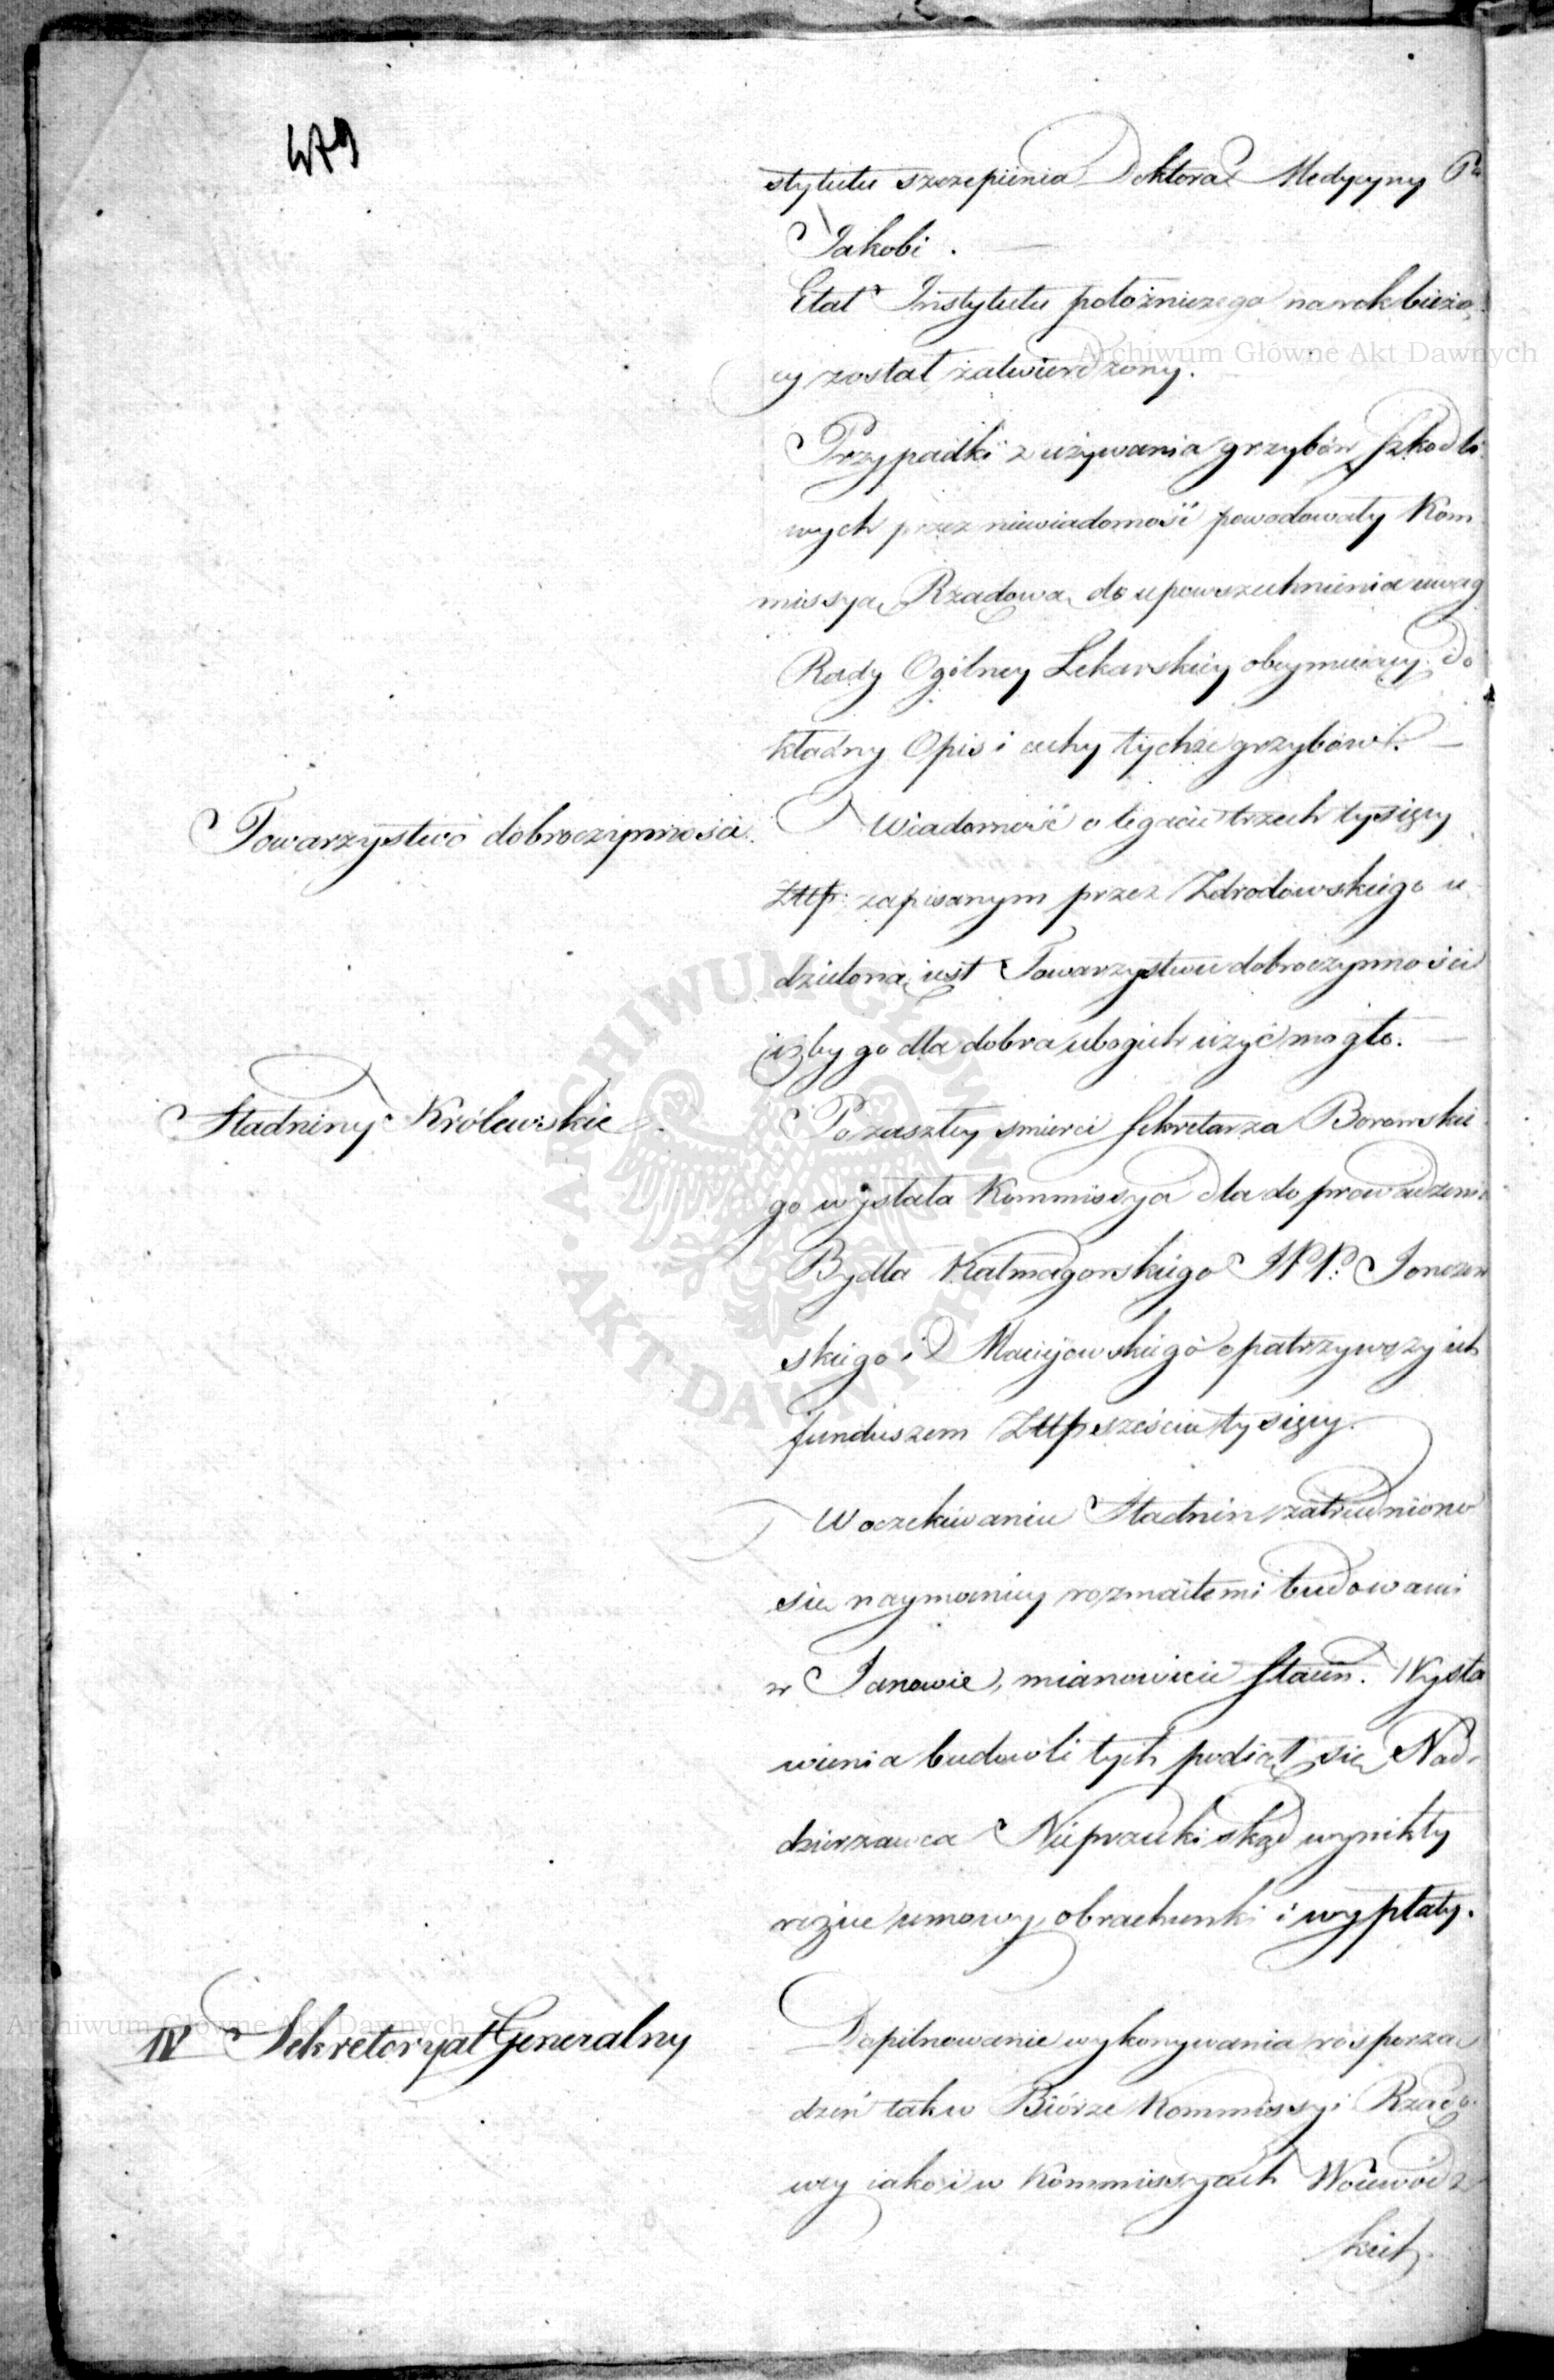 479
stytutu szczepienia Doktora Medycyny Pa
Jakobi.
Etat Instytutu położniczego na rok bieżą
cy został zatwierdzony.
Przypadki z używania grzybów szkodli
wych przez niewiadomość powodowały Kom
missyą Rządową do upowszechnienia uwag
Rady Ogólney Lekarskiey obeymuiący do
kładny Opis i cechy tychże grzybów. —
Towarzystwo dobroczynności.
Wiadomość o legacie trzech tysięcy
Złtp: zapisanym przez Zdrodowskiego u
dzielona iest Towarzystwu dobroczynności
iżby go dla dobra ubogich użyć mogło. —
Stadniny Królewskie.
Po zaszłey śmierci Sekretarza Borowskie
go wysłała Kommissya dla doprowadzenia
Bydła Kałmagorskiego JPP.
skiego i Macijowskiego opatrzywszy ich
funduszem Złtp sześciu tysięcy.
W oczekiwaniu Stadnin zatrudniono
się naymocniey rozmaitemi budowami
w Janowie, mianowicie staien. Wysta
wienia budowli tych podiął się Nad-
dzierzawca Nieprzecki skąd wynikły
różne umowy, obrachunki i wypłaty.
IV Sekretaryat Generalny
Dopilnowanie wykonywania rosporzą
dzeń tak w Biórze Kommissyi Rządo
wey iako i w Kommissyach Woiewódz
kich.
Archiwum Główne Akt Dawnych
Archiwum Główne Akt Dawnych
ARCHIWUM GŁÓWNE · AKT DAWNYCH ·